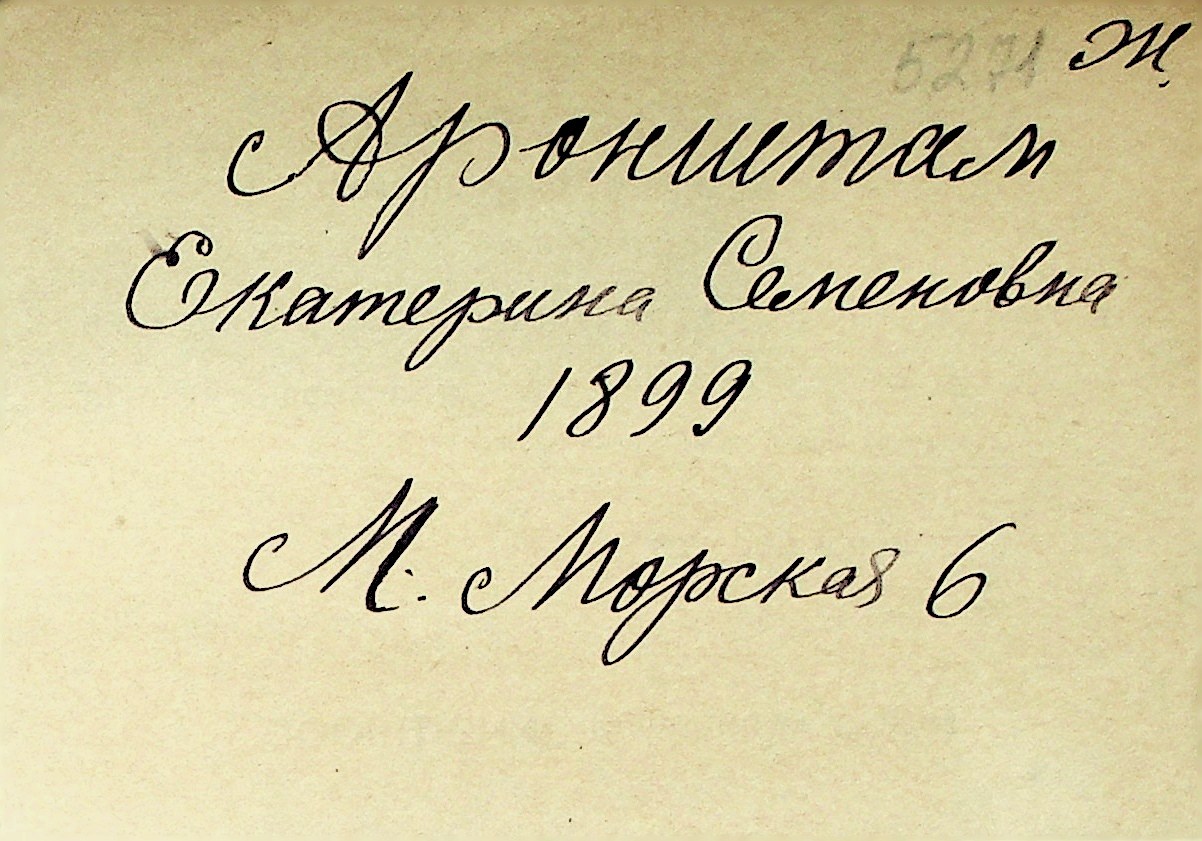 5271 Ж.
Аронштам
Екатерина Семеновна
1899
М. Морская 6